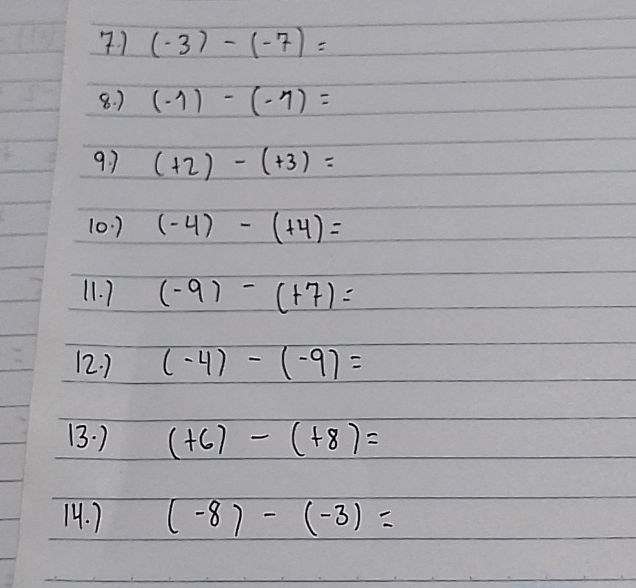 7.) (-3) - (-7) =
8.) (-1) - (-1) =
9.) (+2) - (+3) =
10.) (-4) - (+4) =
11.) (-9) - (+7) =
12.) (-4) - (-9) =
13.) (+6) - (+8) =
14.) (-8) - (-3) =